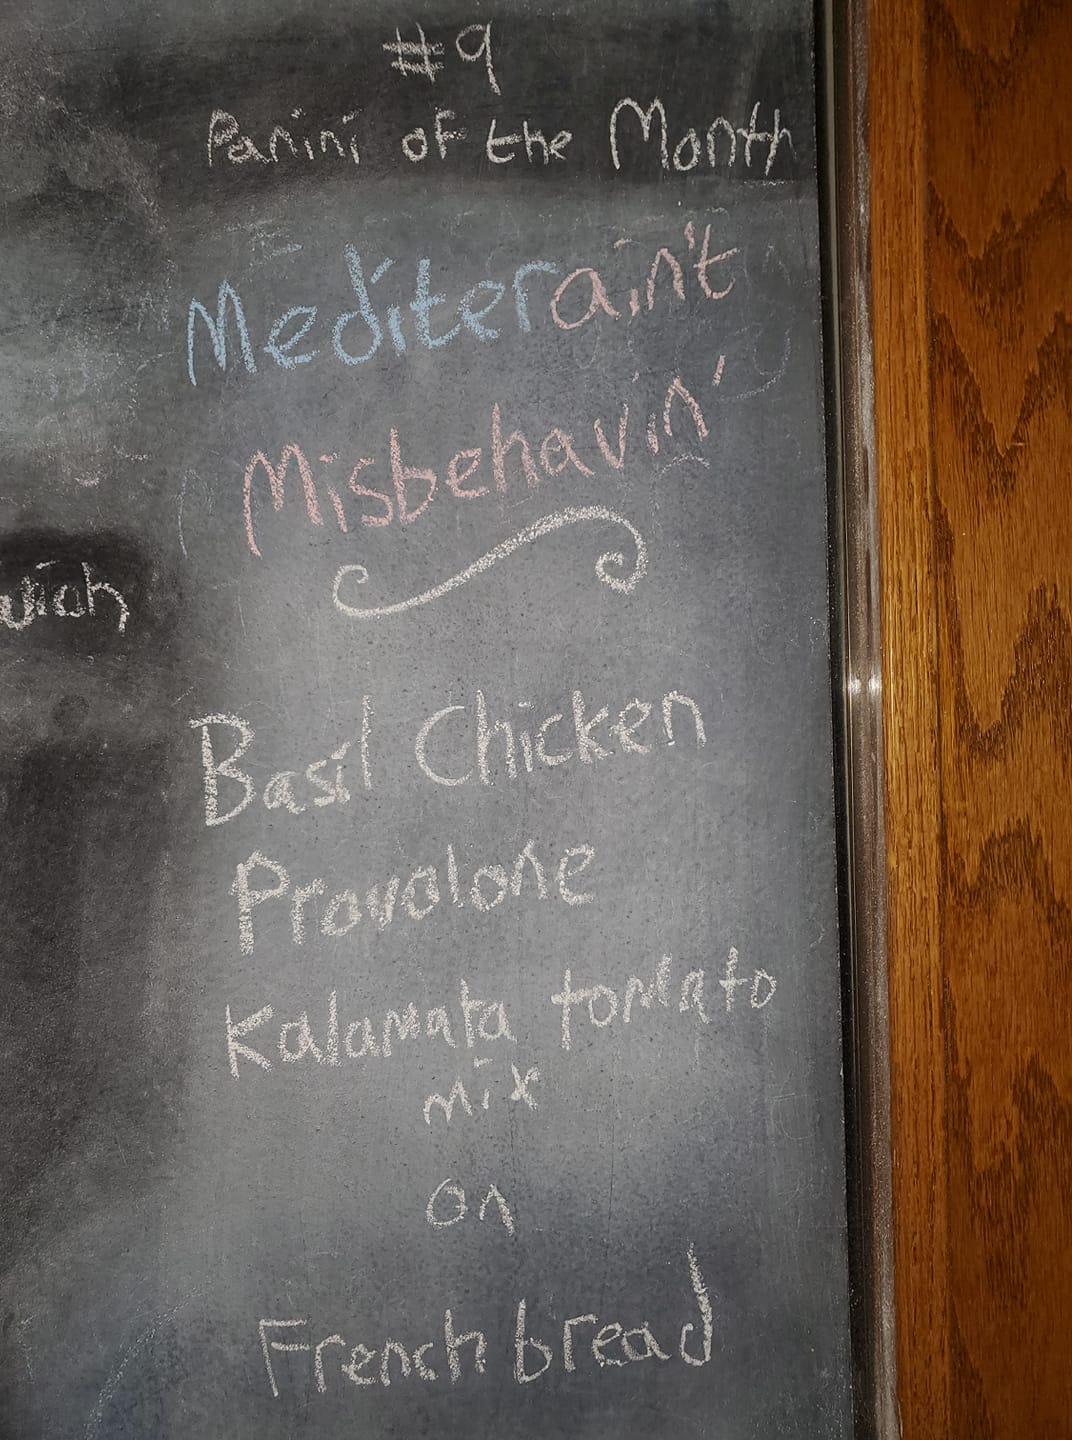 #9
Panini of the Month
Mediterain't
Misbehavin'
Basil Chicken
Provolone
Kalamata tomato
mix
on
French bread